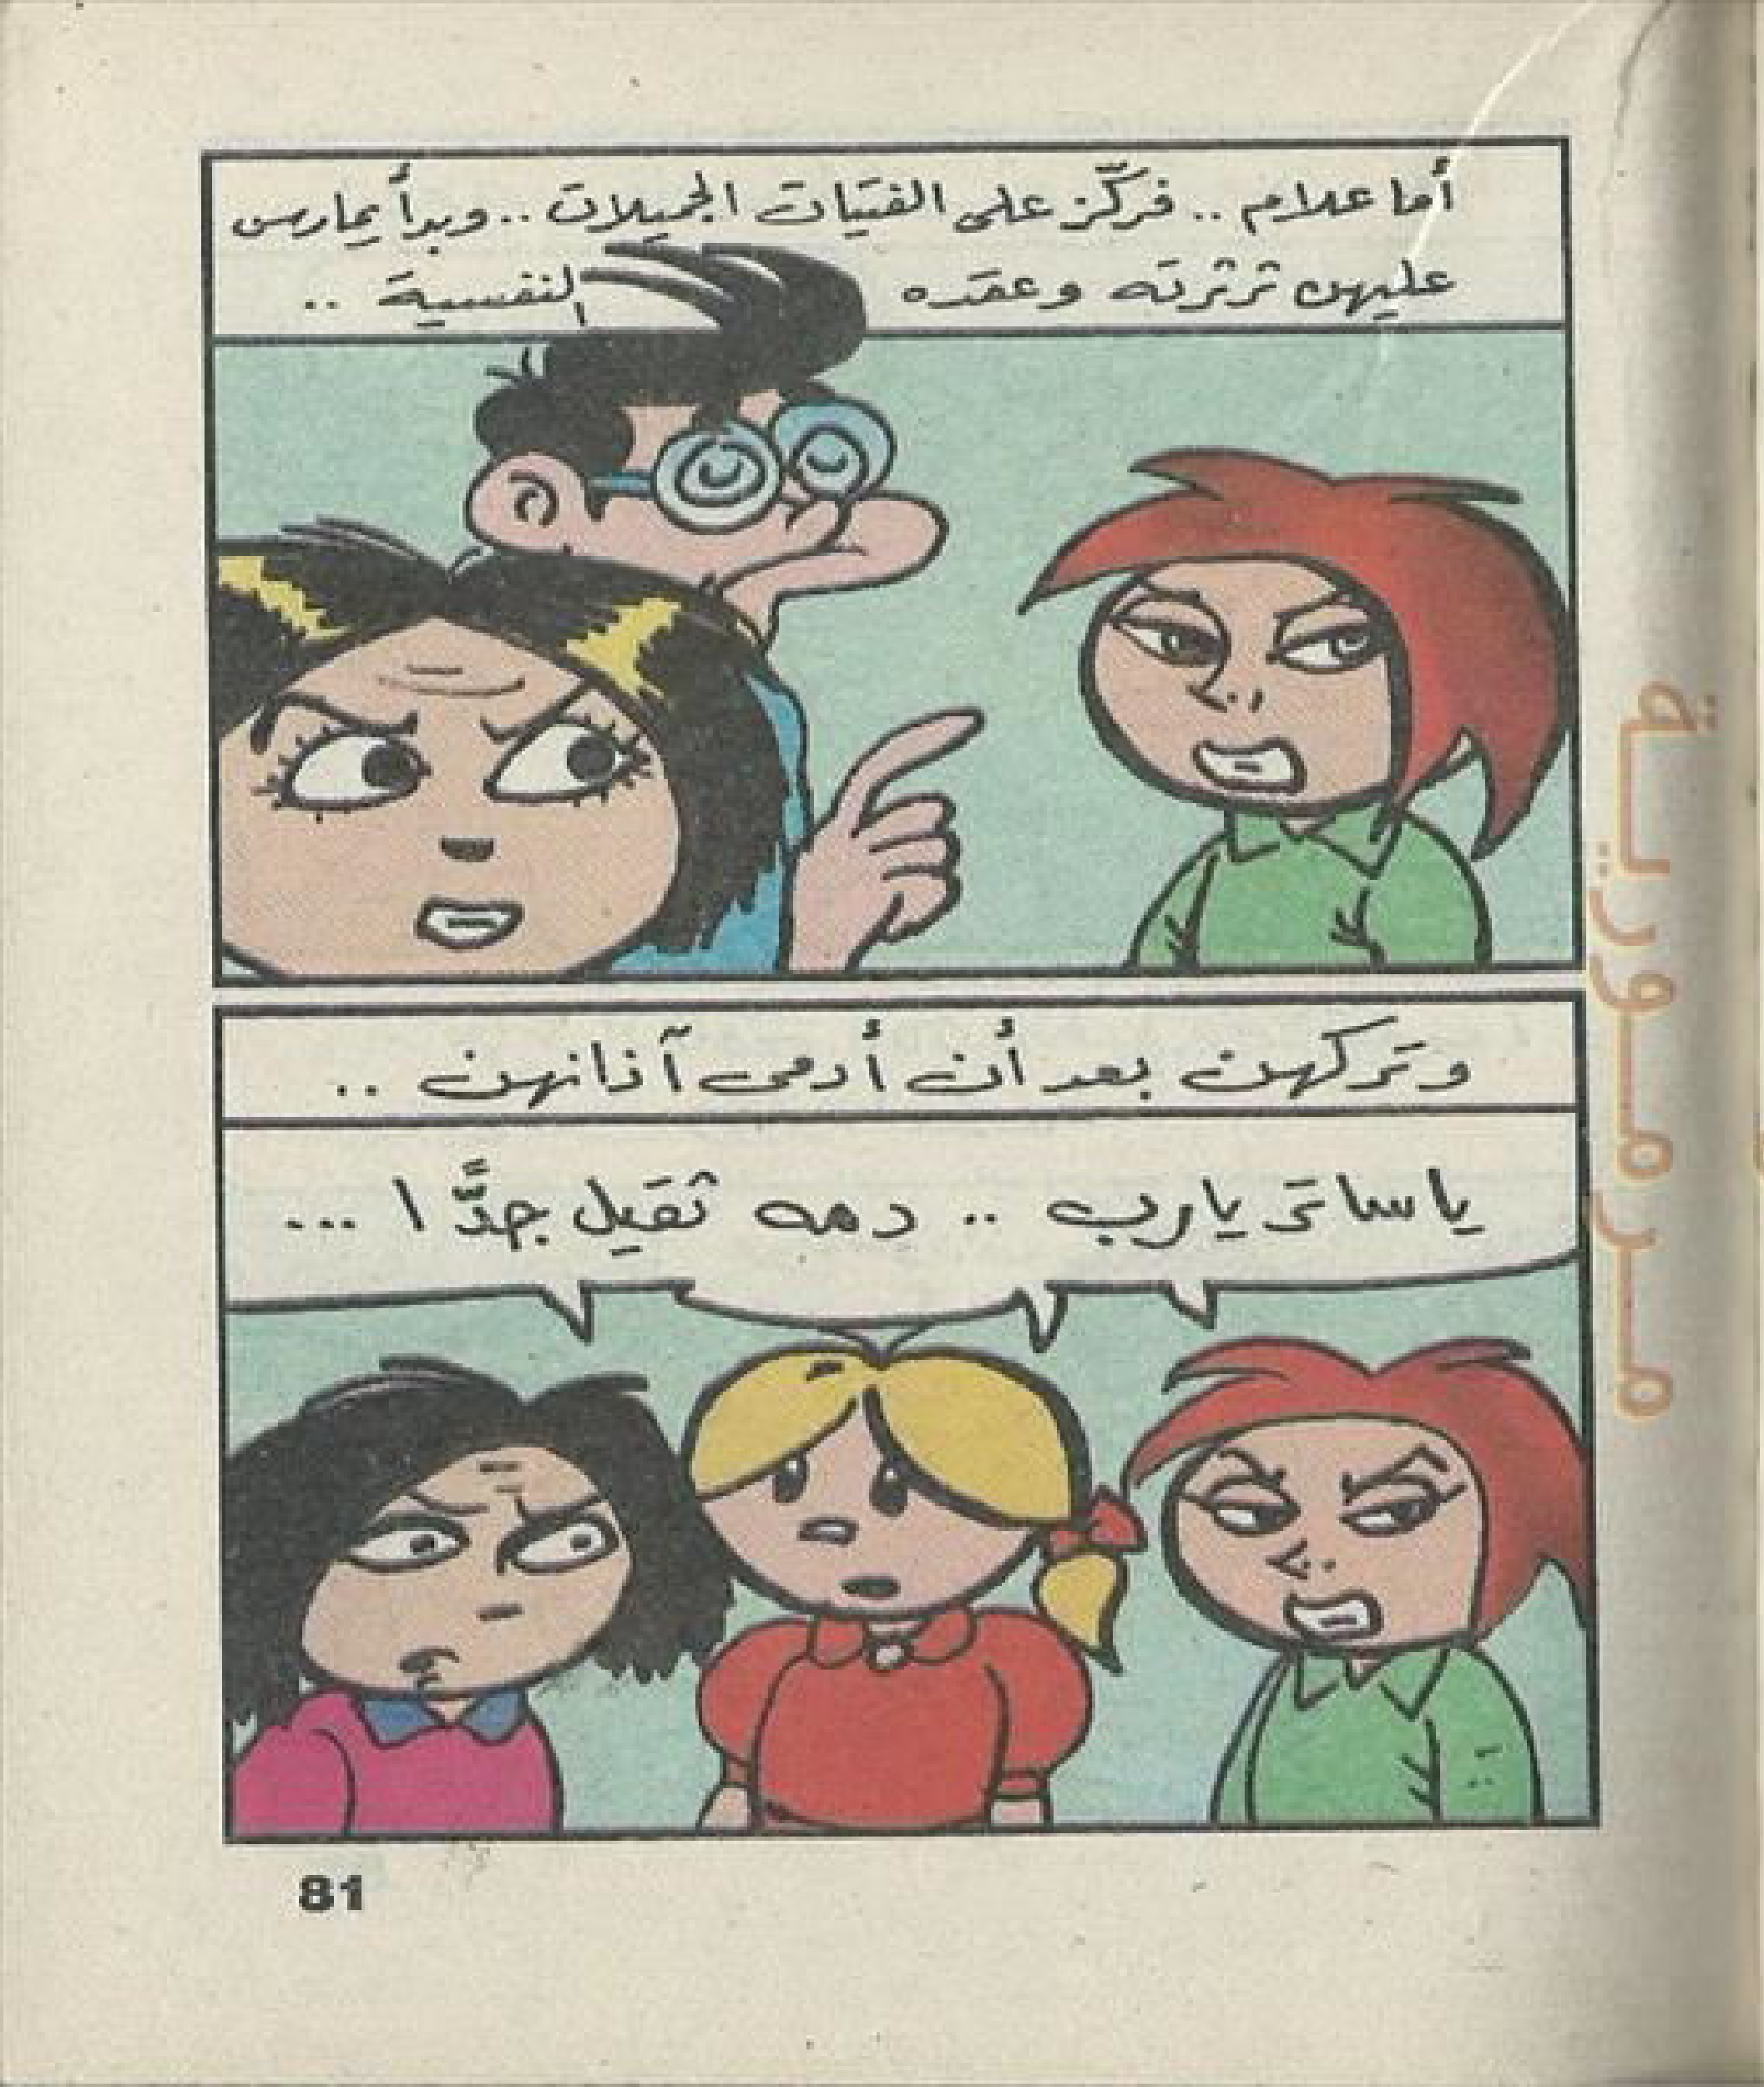 أما علام .. فركّز على الفتيات الجميلات .. وبدأ يمارس
عليهن ثرثرته وعقده النفسية ..
وتركهن بعد أن أدمى آذانهن ..
يا ساتر يارب .. دمه ثقيل جدًّا ...
81
مرمورية